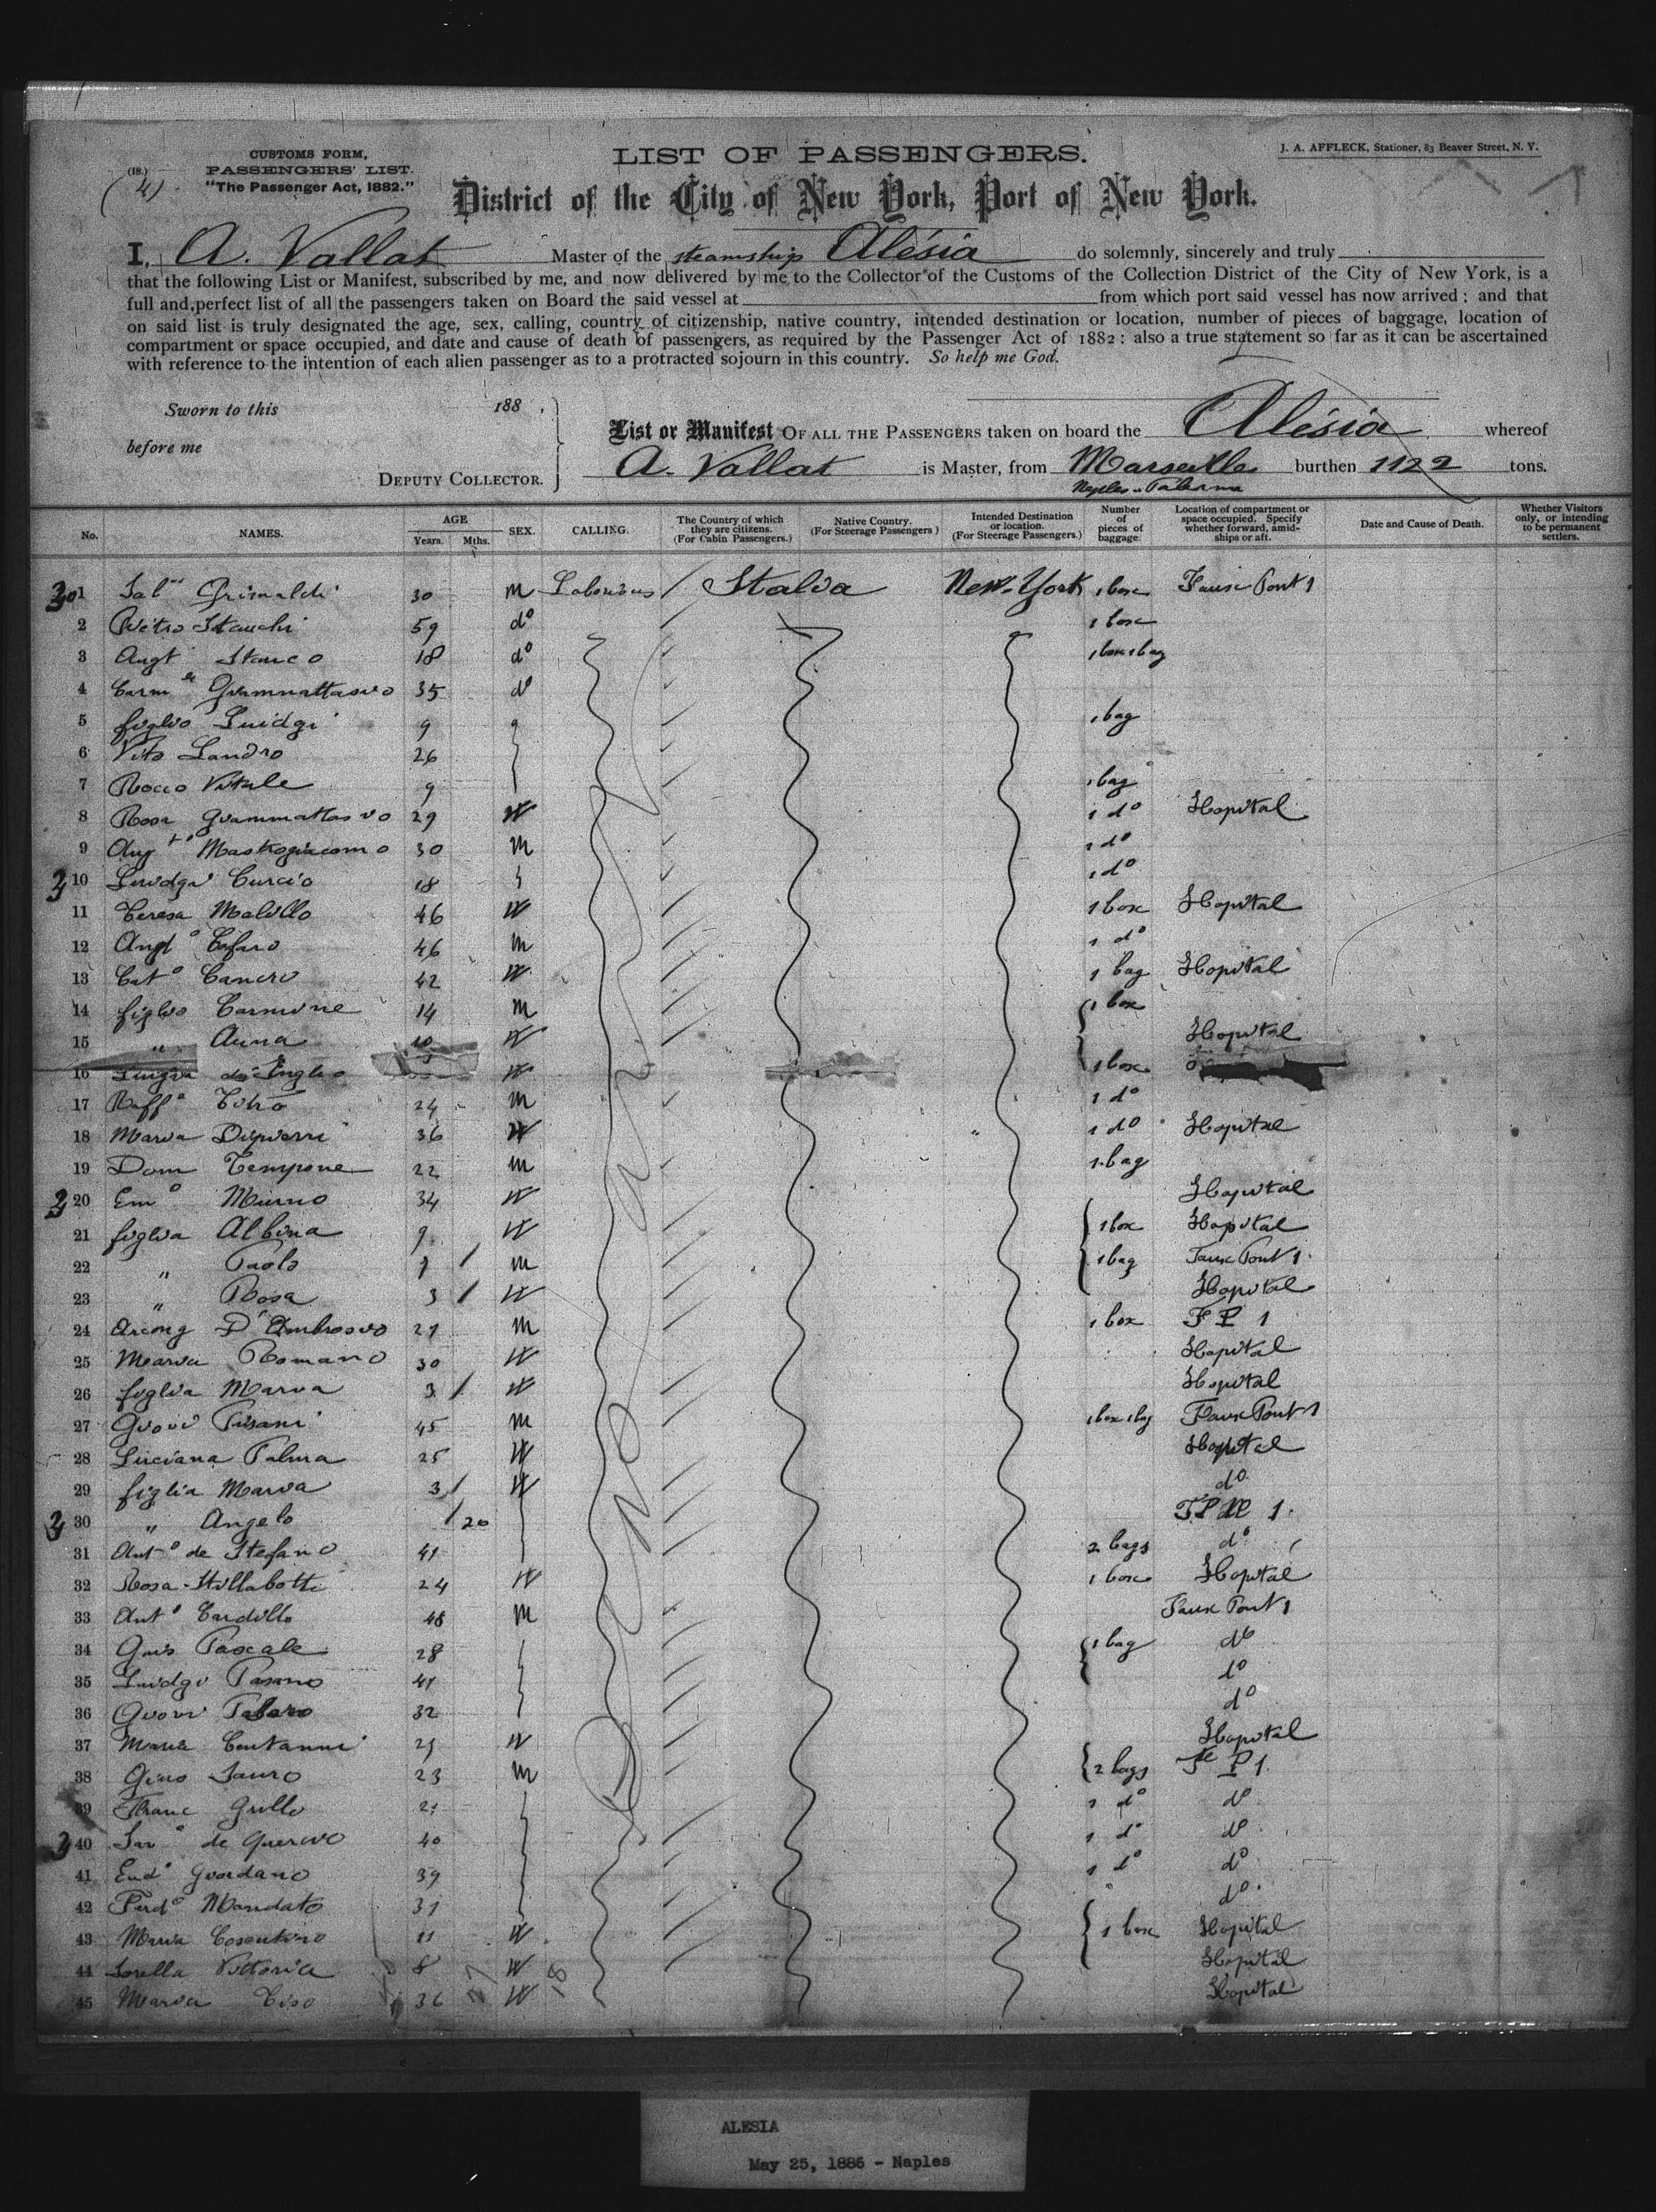 CUSTOMS FORM,
(18.) PASSENGERS' LIST.
(4) "The Passenger Act, 1882."
LIST OF PASSENGERS.
J. A. AFFLECK, Stationer, 83 Beaver Street, N. Y.
District of the City of New York, Port of New York.
I, A. Vallat Master of the steamship Alésia do solemnly, sincerely and truly
that the following List or Manifest, subscribed by me, and now delivered by me to the Collector of the Customs of the Collection District of the City of New York, is a
full and perfect list of all the passengers taken on Board the said vessel at from which port said vessel has now arrived; and that
on said list is truly designated the age, sex, calling, country of citizenship, native country, intended destination or location, number of pieces of baggage, location of
compartment or space occupied, and date and cause of death of passengers, as required by the Passenger Act of 1882; also a true statement so far as it can be ascertained
with reference to the intention of each alien passenger as to a protracted sojourn in this country. So help me God.
Sworn to this 188 .
before me
DEPUTY COLLECTOR.
List or Manifest OF ALL THE PASSENGERS taken on board the Alésia whereof
A. Vallat is Master, from Marseille burthen 1122 tons.
Naples Palerma
No. NAMES. AGE Years. Mths. SEX. CALLING. The Country of which they are citizens. (For Cabin Passengers.) Native Country. (For Steerage Passengers) Intended Destination or location. (For Steerage Passengers.) Number of pieces of baggage. Location of compartment or space occupied. Specify whether forward, amidships or aft. Date and Cause of Death. Whether Visitors only, or intending to be permanent settlers.
301 Grimaldi 30 m Italia New-York 1 box Faux Pont 1
2 Pietro 59 do 1 box
3 Augt Stanco 18 do 1 box 1 bag
4 35 do
5 figlio Luidgi 9 1 bag
6 Vito Landro 26
7 Rocco Vitale 9 1 bag
8 Rosa 29 W 1 do Hopital
9 Mastrogiacomo 30 m 1 do
10 Luidgi Curcio 18 1 do
11 Teresa Malillo 46 W 1 box Hopital
12 Cafaro 46 m 1 do
13 42 W 1 bag Hopital
14 figlio Carmine 14 m 1 box
15 " Anna 10 W Hopital
16 W 1 box
17 24 m 1 do
18 Maria 36 W 1 do Hopital
19 Dom Tempone 22 m 1 bag
20 Emo 34 W Hopital
21 figlia Albina 9 W 1 box Hopital
22 " Paolo 7 m 1 bag Faux Pont 1
23 " Rosa 3 W Hopital
24 D'Ambrosio 21 m 1 box F P 1
25 Maria Romano 30 W Hopital
26 figlia Maria 3 W Hopital
27 Giovi Pisani 45 m 1 box 1 bag Faux Pont 1
28 Luciana Palma 25 W Hopital
29 figlia Maria 3 W do
30 " Angelo 20
31 Anto de Stefano 41 2 bags do
32 Rosa Stillabotti 24 W 1 box Hopital
33 Anto Cardillo 48 m Faux Pont 1
34 Pascale 28 1 bag do
35 Luidgi 41 do
36 Giovi 32 do
37 Maria W Hopital
38 Gino Sauro 23 m 2 bags P 1
39 Franc Grillo 21 1 do do
40 40 1 do do
41 Giordano 39 1 do do
42 Ferdo Mandato 31 do
43 Maria Cosentino 11 W 1 box Hopital
44 Sorella Vittoria 8 W Hopital
45 Maria 36 W Hopital
ALESIA
May 25, 1886 - Naples